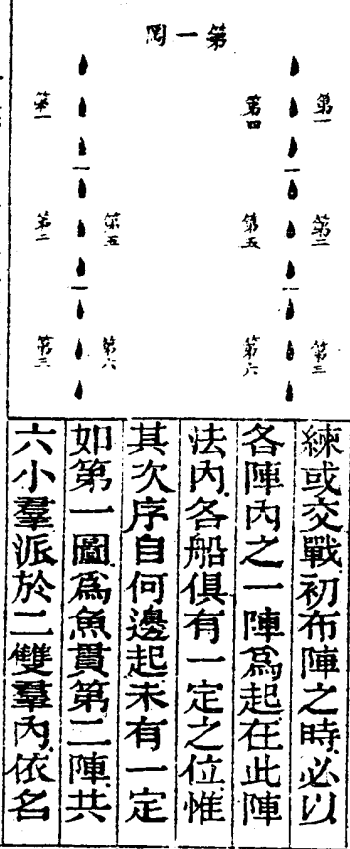 第一圖
第一
第四
第一
第二
第五
第五
第二
第三
第六
第六
第三
練或交戰初布陣之時必以
各陣內之一陣爲起在此陣
法內各船俱有一定之位惟
其次序自何邊起未有一定
如第一圖爲魚貫第二陣共
六小羣派於二雙羣內依名